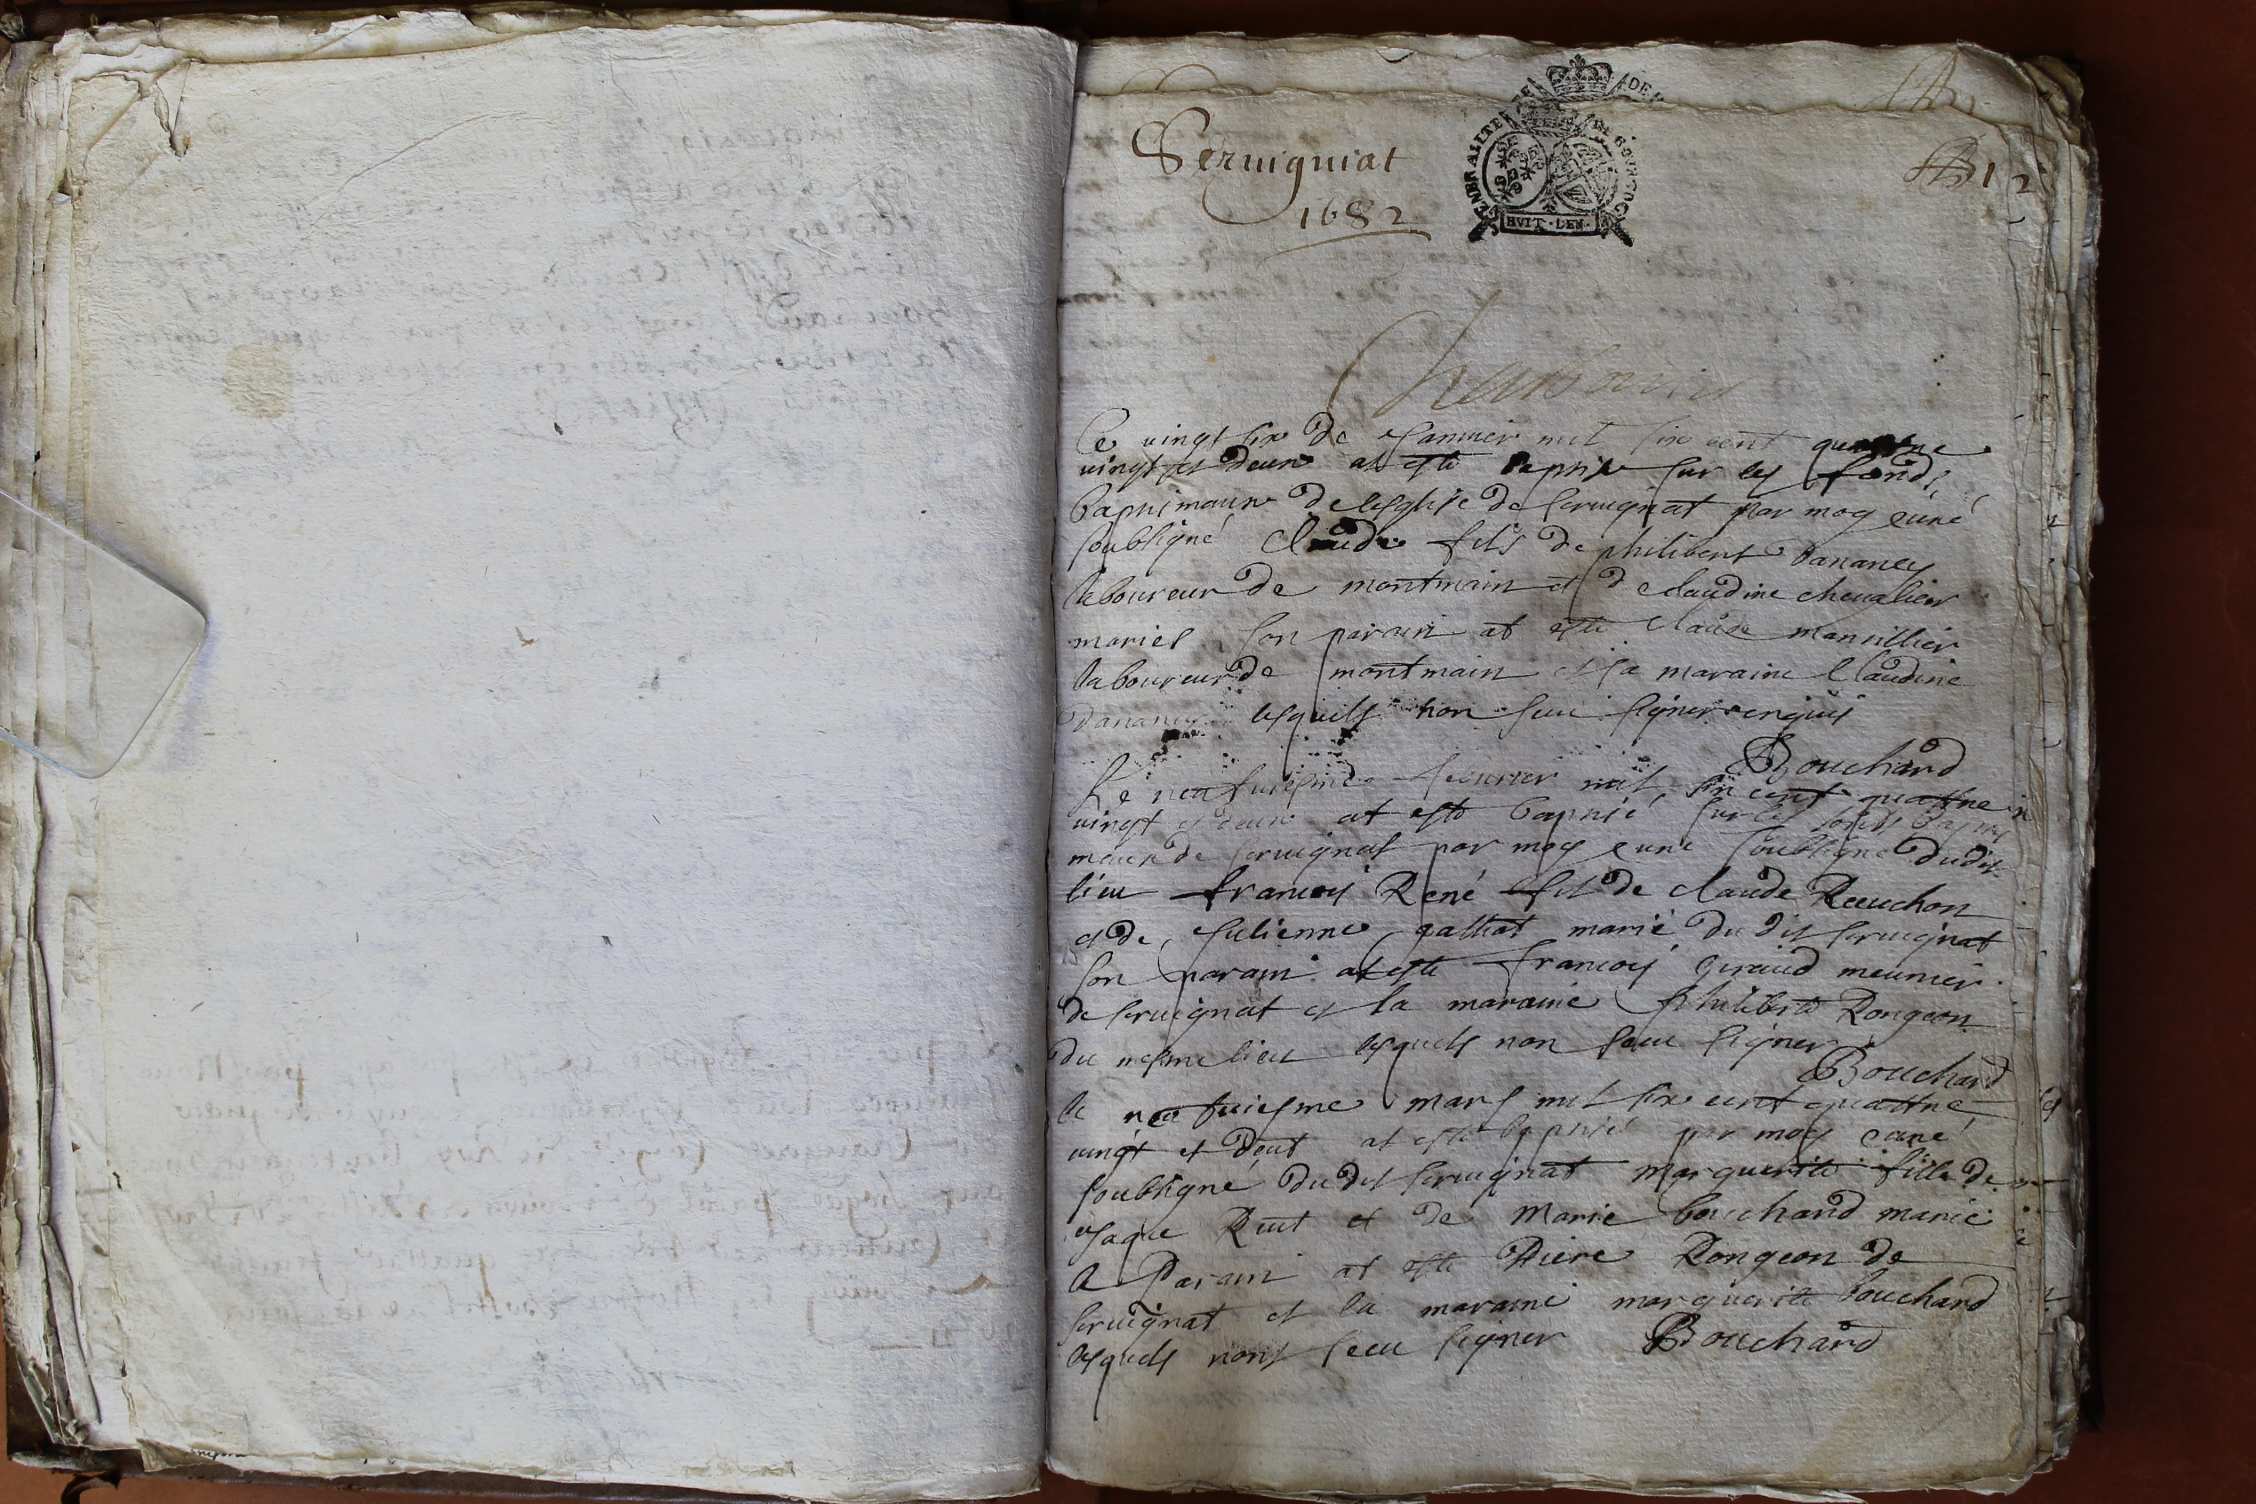 Seruigniat
1682
GENERALITE DE BOURGOG
HVIT · DEN ·
Ce vingt six de Januier mil six cent quattre
vingt et deux at esté baptisé sur les fonds
baptimaux de lesglise de seruignat par moy curé
soubsigné Claude fils de philibert Dananey
laboureur de montmain et de claudine cheualier
mariés son parain at esté claude manillier
laboureur de montmain et sa maraine Claudine
Dananey lesquels non sceu signer enquis
Bouchard
Le neufuiesme feurier mil six cent quattre
vingt et deux at esté baptisé sur les fonds baptis
maux de seruignat par moy curé soubsigné dudit
lieu francois René fils de claude Reuchon
et de Julienne gallhat marié du dit seruignat
son parain at esté francois Geraud meunier
de seruignat et la maraine philiberte Rongeon
du mesme lieu lesquels non sceu signer
Bouchard
le neufuiesme mars mil six cent quattre
vingt et deux at esté baptisé par moy curé
soubsigné du dit seruignat marguerite fille de
Jaque Rut et de Marie bouchard marié
a Parain at esté Piere Rongeon de
seruignat et la maraine marguerite bouchard
lesquels nont sceu signer Bouchard